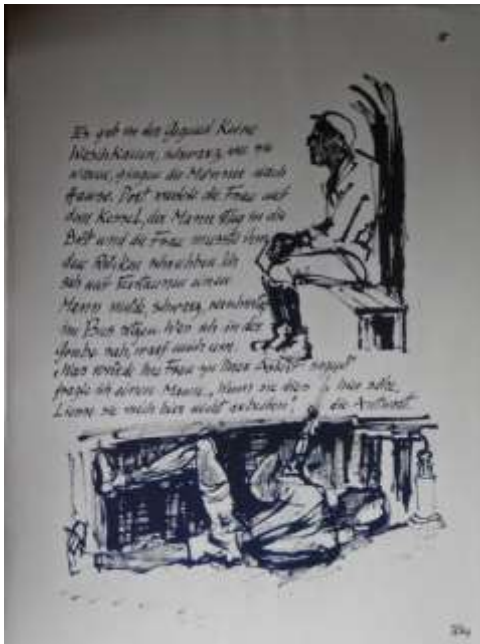 Es gab in der Gegend Keine
WaschKauen, schwarz, wie sie
waren, gingen die Männer nach
Hause. Dort machte die Frau auf
dem Kessel, der Mann stieg in die
Bütt und die Frau musste ihm
den Rücken schrubben. Ich
sah auf einen
Mann müde, schwarz,
im Bus sitzen. Was ich in der
Grube sah, warf mich um.
„Was würde Ihre Frau zu Ihrer Arbeit sagen?"
fragte ich einen Mann. „Wenn sie dies hier sähe,
Liesse sie mich hier nicht arbeiten", die Antwort.